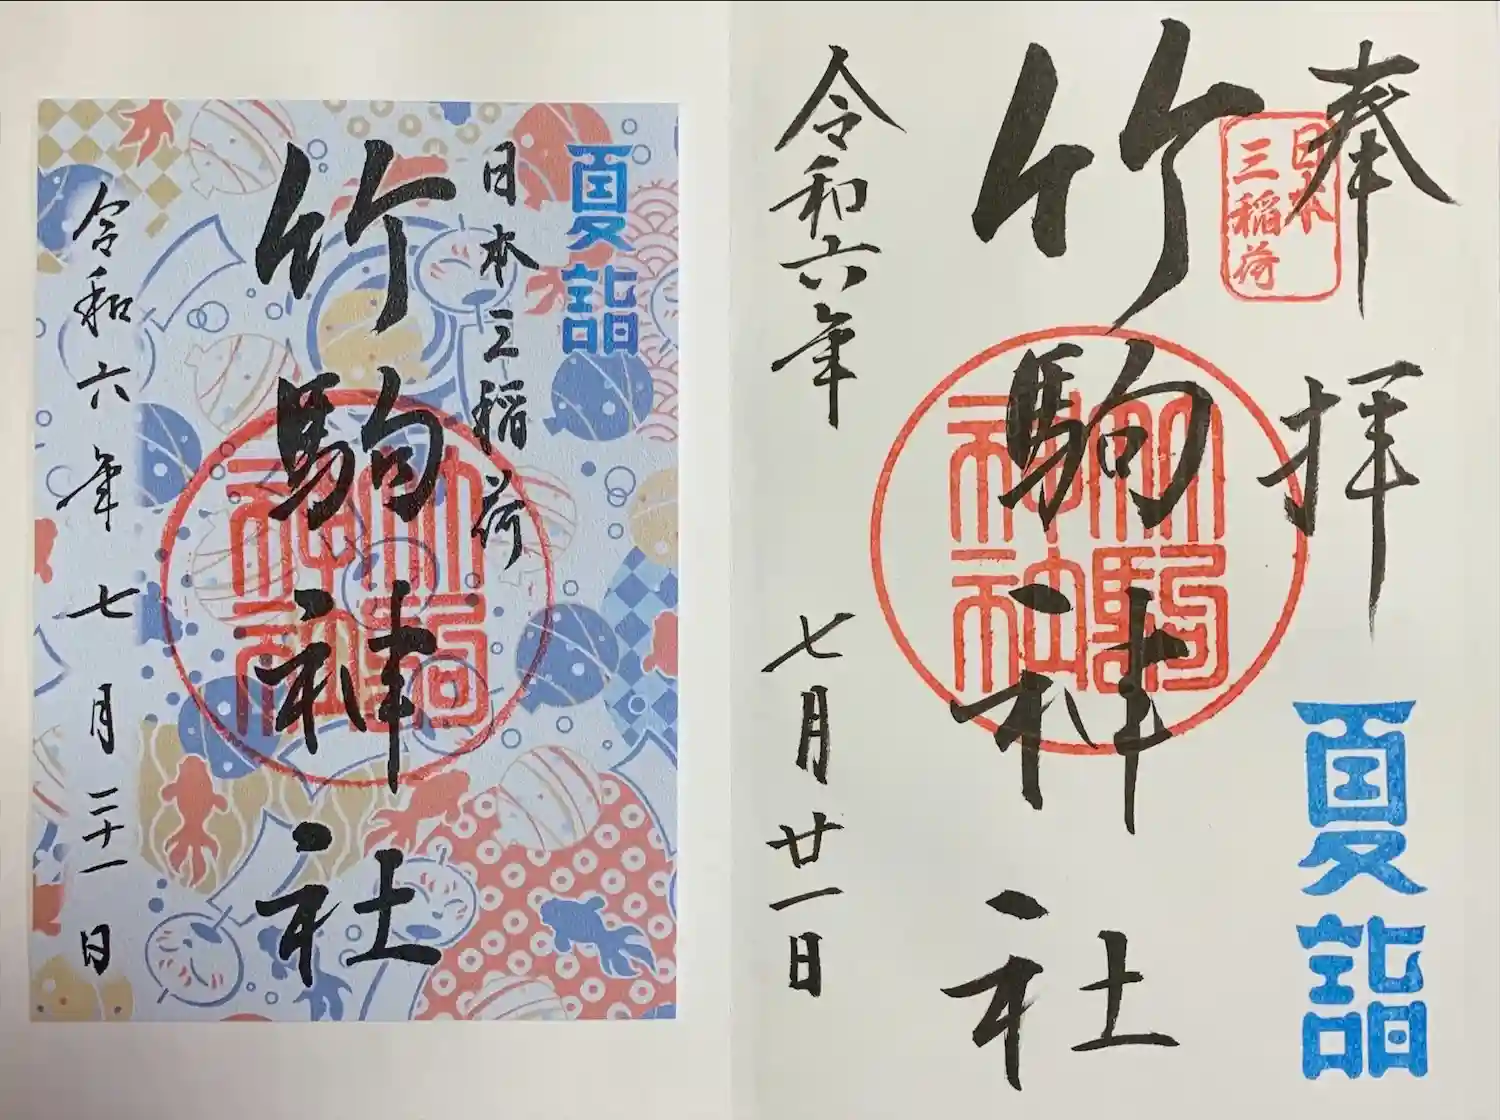 奉拝
日本
三稲荷
夏詣
竹駒神社
竹駒
神社
令和六年七月廿一日
夏詣
日本三稲荷
竹駒神社
竹駒
神社
令和六年七月二十一日